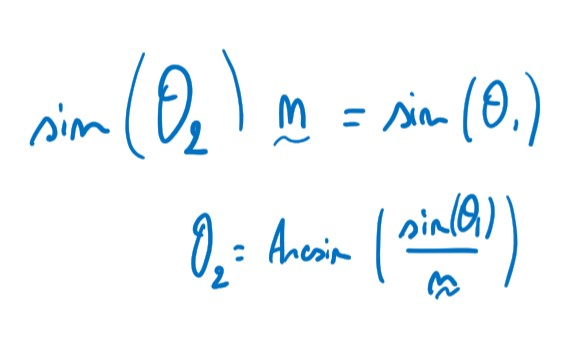 sin(θ₂) n = sin(θ₁)
θ₂ = Arcsin(sin(θ₁)/n)